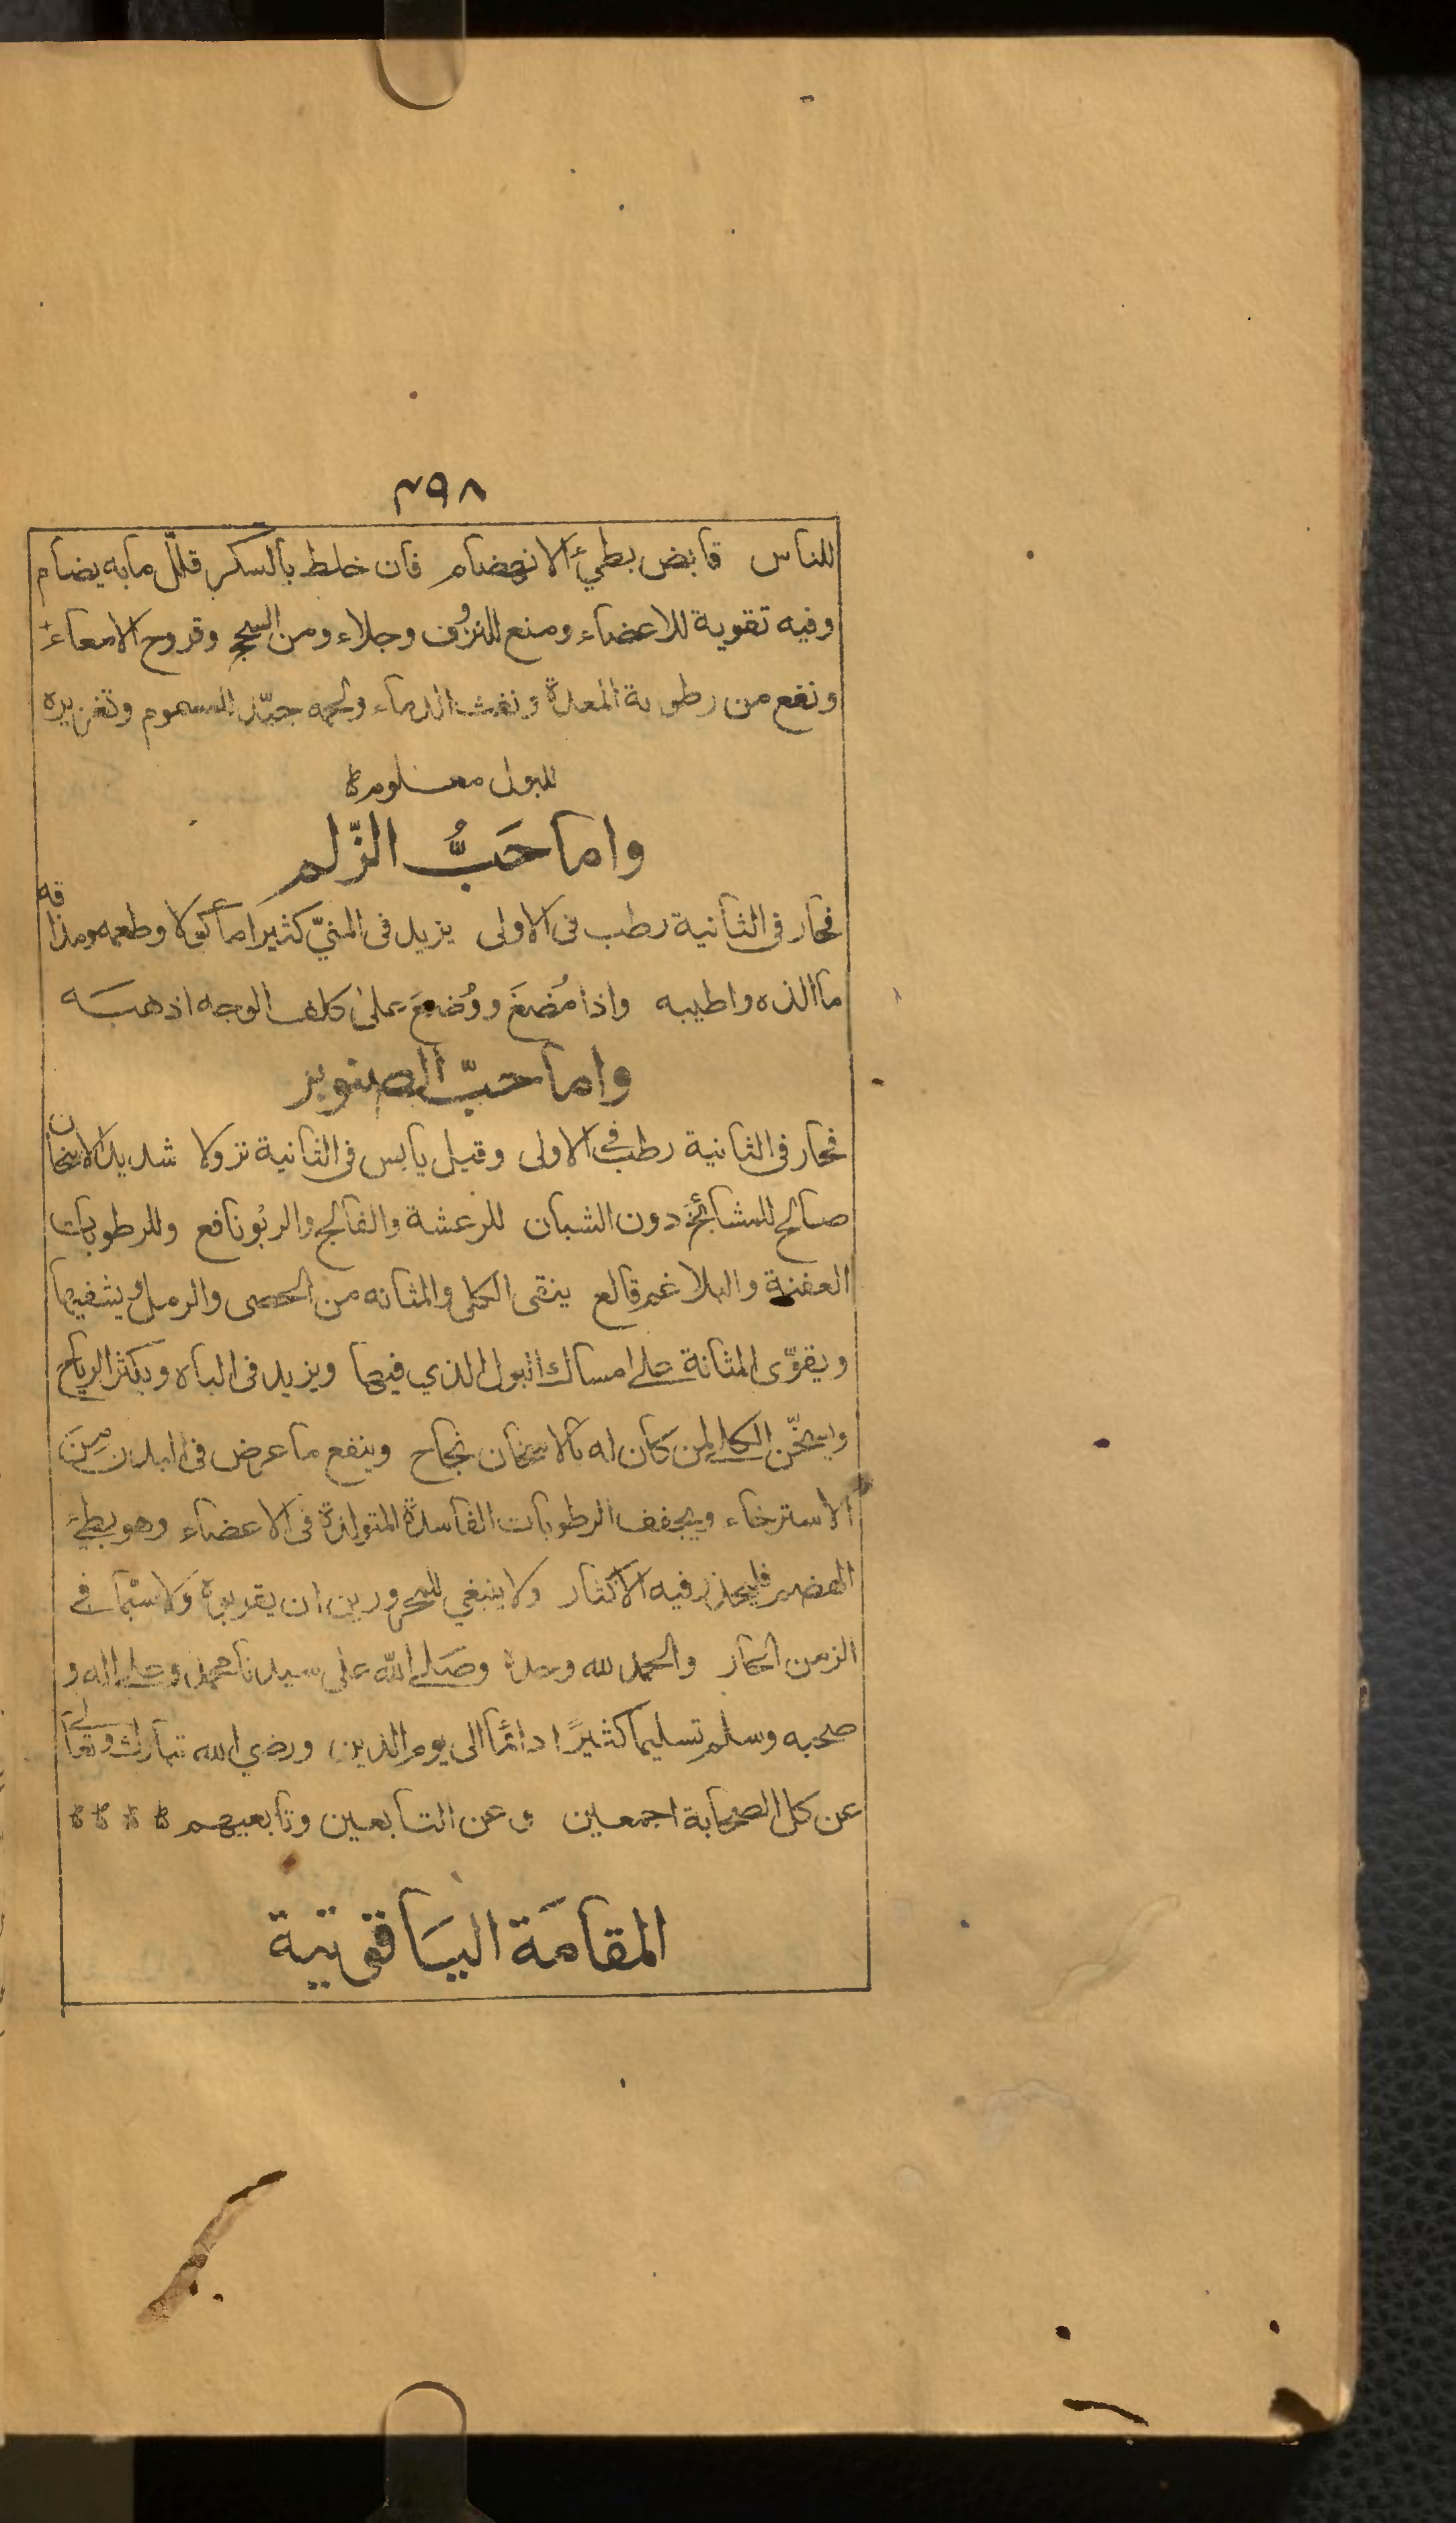 ٢٩٨
للناس قابض بطيئ الانهضام فان خلط بالسكر قلّل ما به يضام
وفيه تقوية للاعضاء ومنع للنزُف وجلاء ومن السحج وقروح الامعاء
ونفع من رطوبة المعدة ونفث الدماء ولحمه جيّد للسموم وتغزيره
للبول معلومة
واما حَبُّ الزّلم
فحار فى الثانية رطب فى الاولى يزيد فى المنيّ كثيرا مأكولا وطعمه ومذاقه
ما الذه واطيبه واذا مُضغَ ووُضعَ على كلف الوجه اذهبَه
واما حبّ الصنوبر
فحار فى الثانية رطب فى الاولى وقيل يابس فى الثانية نزولا شديد الاسخان
صالح للمشائخ دون الشبان للرعشة والفالج والربو نافع وللرطوبات
العفنة والبلاغم قالع ينقى الكلى والمثانه من الحصى والرمل ويشفيها
ويقوّى المثانة على امساك البول الذي فيها ويزيد فى الباه ويكثر الرياح
ويسخّن الكلى لمن كان له بالاسخان نجاح وينفع ما عرض فى البدن مِنَ
الاسترخاء ويجفف الرطوبات الفاسدة المتولدة فى الاعضاء وهو بطئ
الهضم فليحذر فيه الاكثار ولا ينبغي للمحرورين ان يقربوه ولا سيّما في
الزمن الحار والحمد لله وحده وصَلى الله على سيدنا محمد وعلى اله و
صحبه وسلم تسليما كثيرًا دائمًا الى يوم الدين ورضي الله تبارك وتعالى
عن كل الصحابة اجمعين وعن التابعين وتابعيهم
المقامَة اليَاقوتية